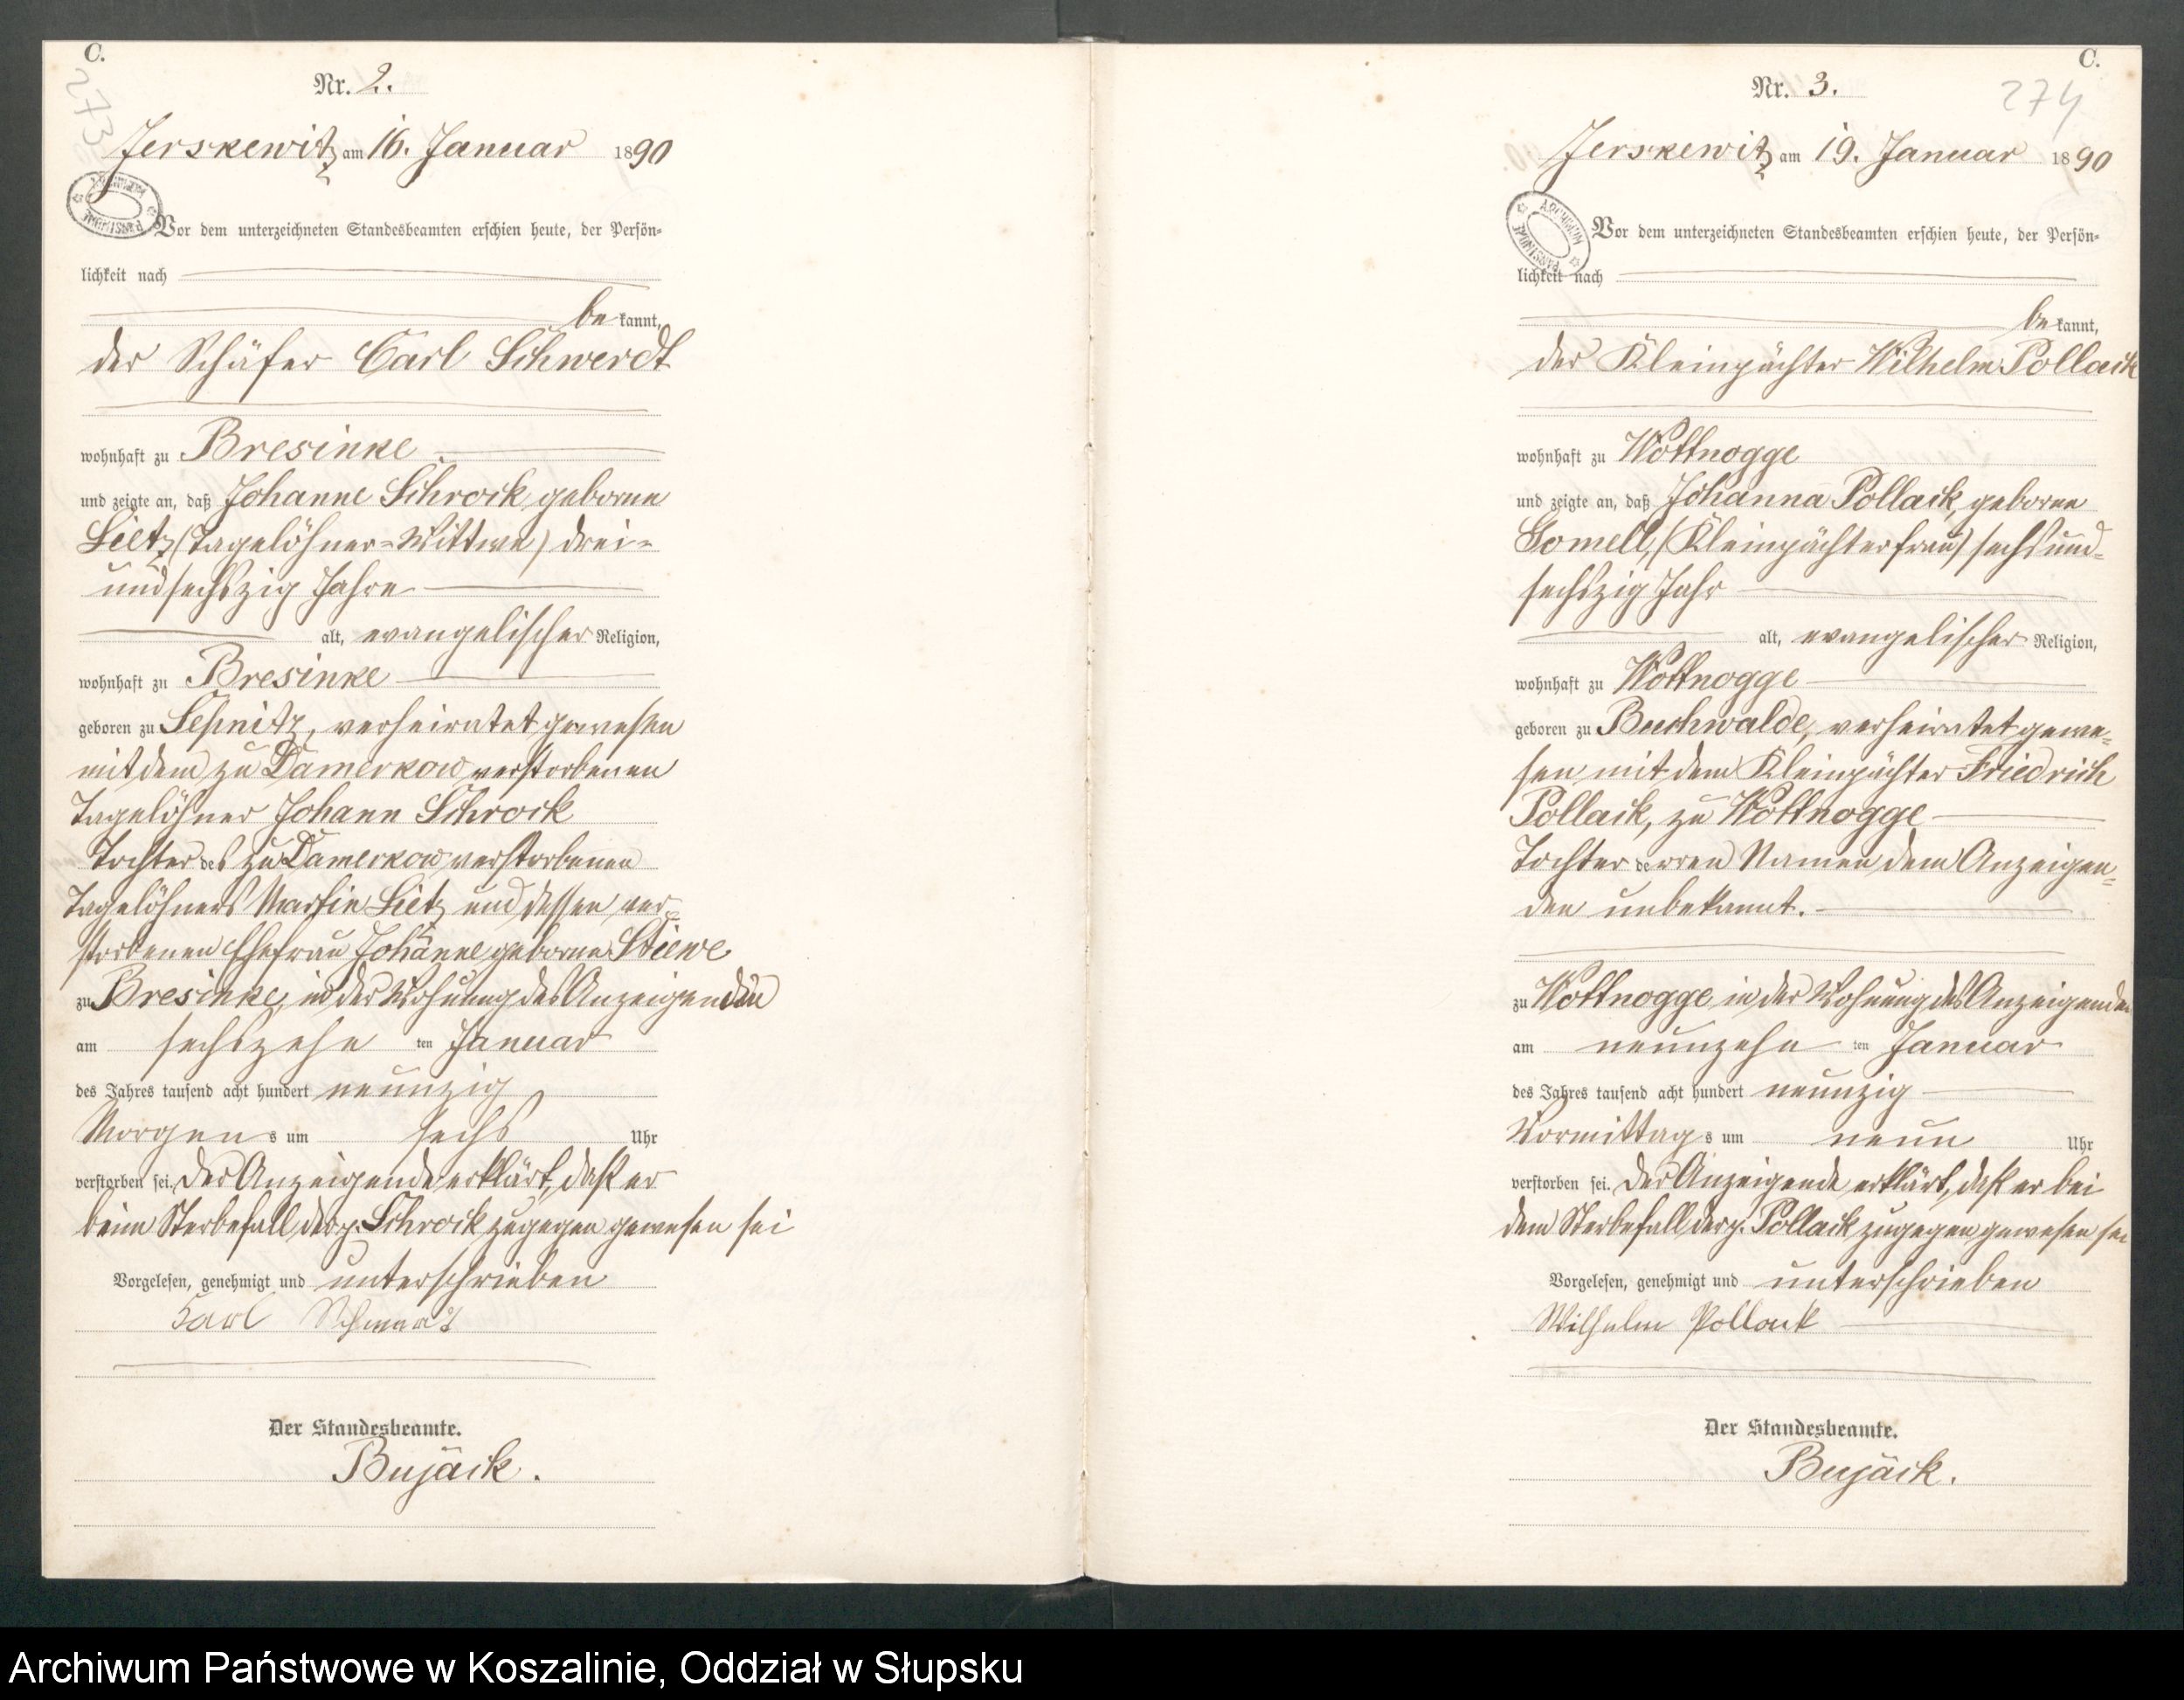 C.
273
Nr. 2.
Jerskewitz am 16. Januar 1890
ARCHIWUM PAŃSTWOWE
Vor dem unterzeichneten Standesbeamten erschien heute, der Persön-
lichkeit nach
be kannt,
der Schäfer Carl Schwerdt
wohnhaft zu Bresinke
und zeigte an, daß Johanne Schrock geborne
Lietz (Tagelöhner-Wittwe) drei-
undsechszig Jahre
alt, evangelischer Religion,
wohnhaft zu Bresinke
geboren zu verheiratet gewesen
mit dem zu Damerkow verstorbenen
Tagelöhner Johann Schrock
Tochter des zu Damerkow verstorbenen
Tagelöhners Martin Lietz und dessen ver-
storbenen Ehefrau Johanne geborne Stiewe
zu Bresinke, in der Wohnung des Anzeigenden
am sechszehn ten Januar
des Jahres tausend acht hundert neunzig
Morgen s um sechs Uhr
verstorben sei. Der Anzeigende erklärt, daß er
beim Sterbefall der p. Schrock zugegen gewesen sei
Vorgelesen, genehmigt und unterschrieben
Carl
Der Standesbeamte.
Bujack.
C.
274
Nr. 3.
Jerskewitz am 19. Januar 1890
ARCHIWUM PAŃSTWOWE
Vor dem unterzeichneten Standesbeamten erschien heute, der Persön-
lichkeit nach
be kannt,
der Kleinpächter Wilhelm Pollack
wohnhaft zu Wottnogge
und zeigte an, daß Johanna Pollack, geborne
Gomell, (Kleinpächterfrau) sechsund-
sechszig Jahr
alt, evangelischer Religion,
wohnhaft zu Wottnogge
geboren zu Buchwalde, verheiratet gewe-
sen mit dem Kleinpächter Friedrich
Pollack, zu Wottnogge
Tochter deren Namen dem Anzeigen-
den unbekannt.
zu Wottnogge in der Wohnung des Anzeigenden
am neunzehn ten Januar
des Jahres tausend acht hundert neunzig
Vormittag s um neun Uhr
verstorben sei. Der Anzeigende erklärt, daß er bei
dem Sterbefall der p. Pollack zugegen gewesen sei
Vorgelesen, genehmigt und unterschrieben
Wilhelm Pollack
Der Standesbeamte.
Bujack.
Archiwum Państwowe w Koszalinie, Oddział w Słupsku